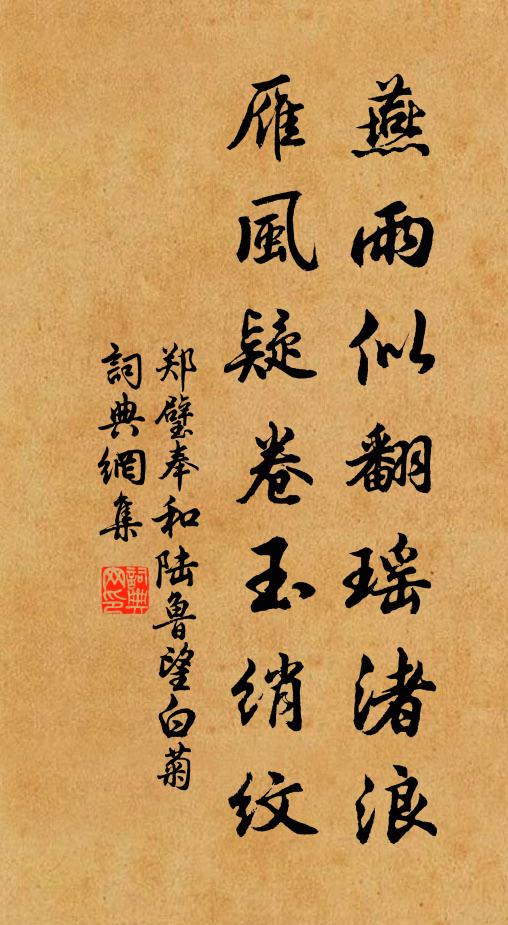 燕雨似翻瑶渚浪
雁風疑卷玉綃紋
郑璧奉和陆魯望白菊
詞典網集
詞典网印